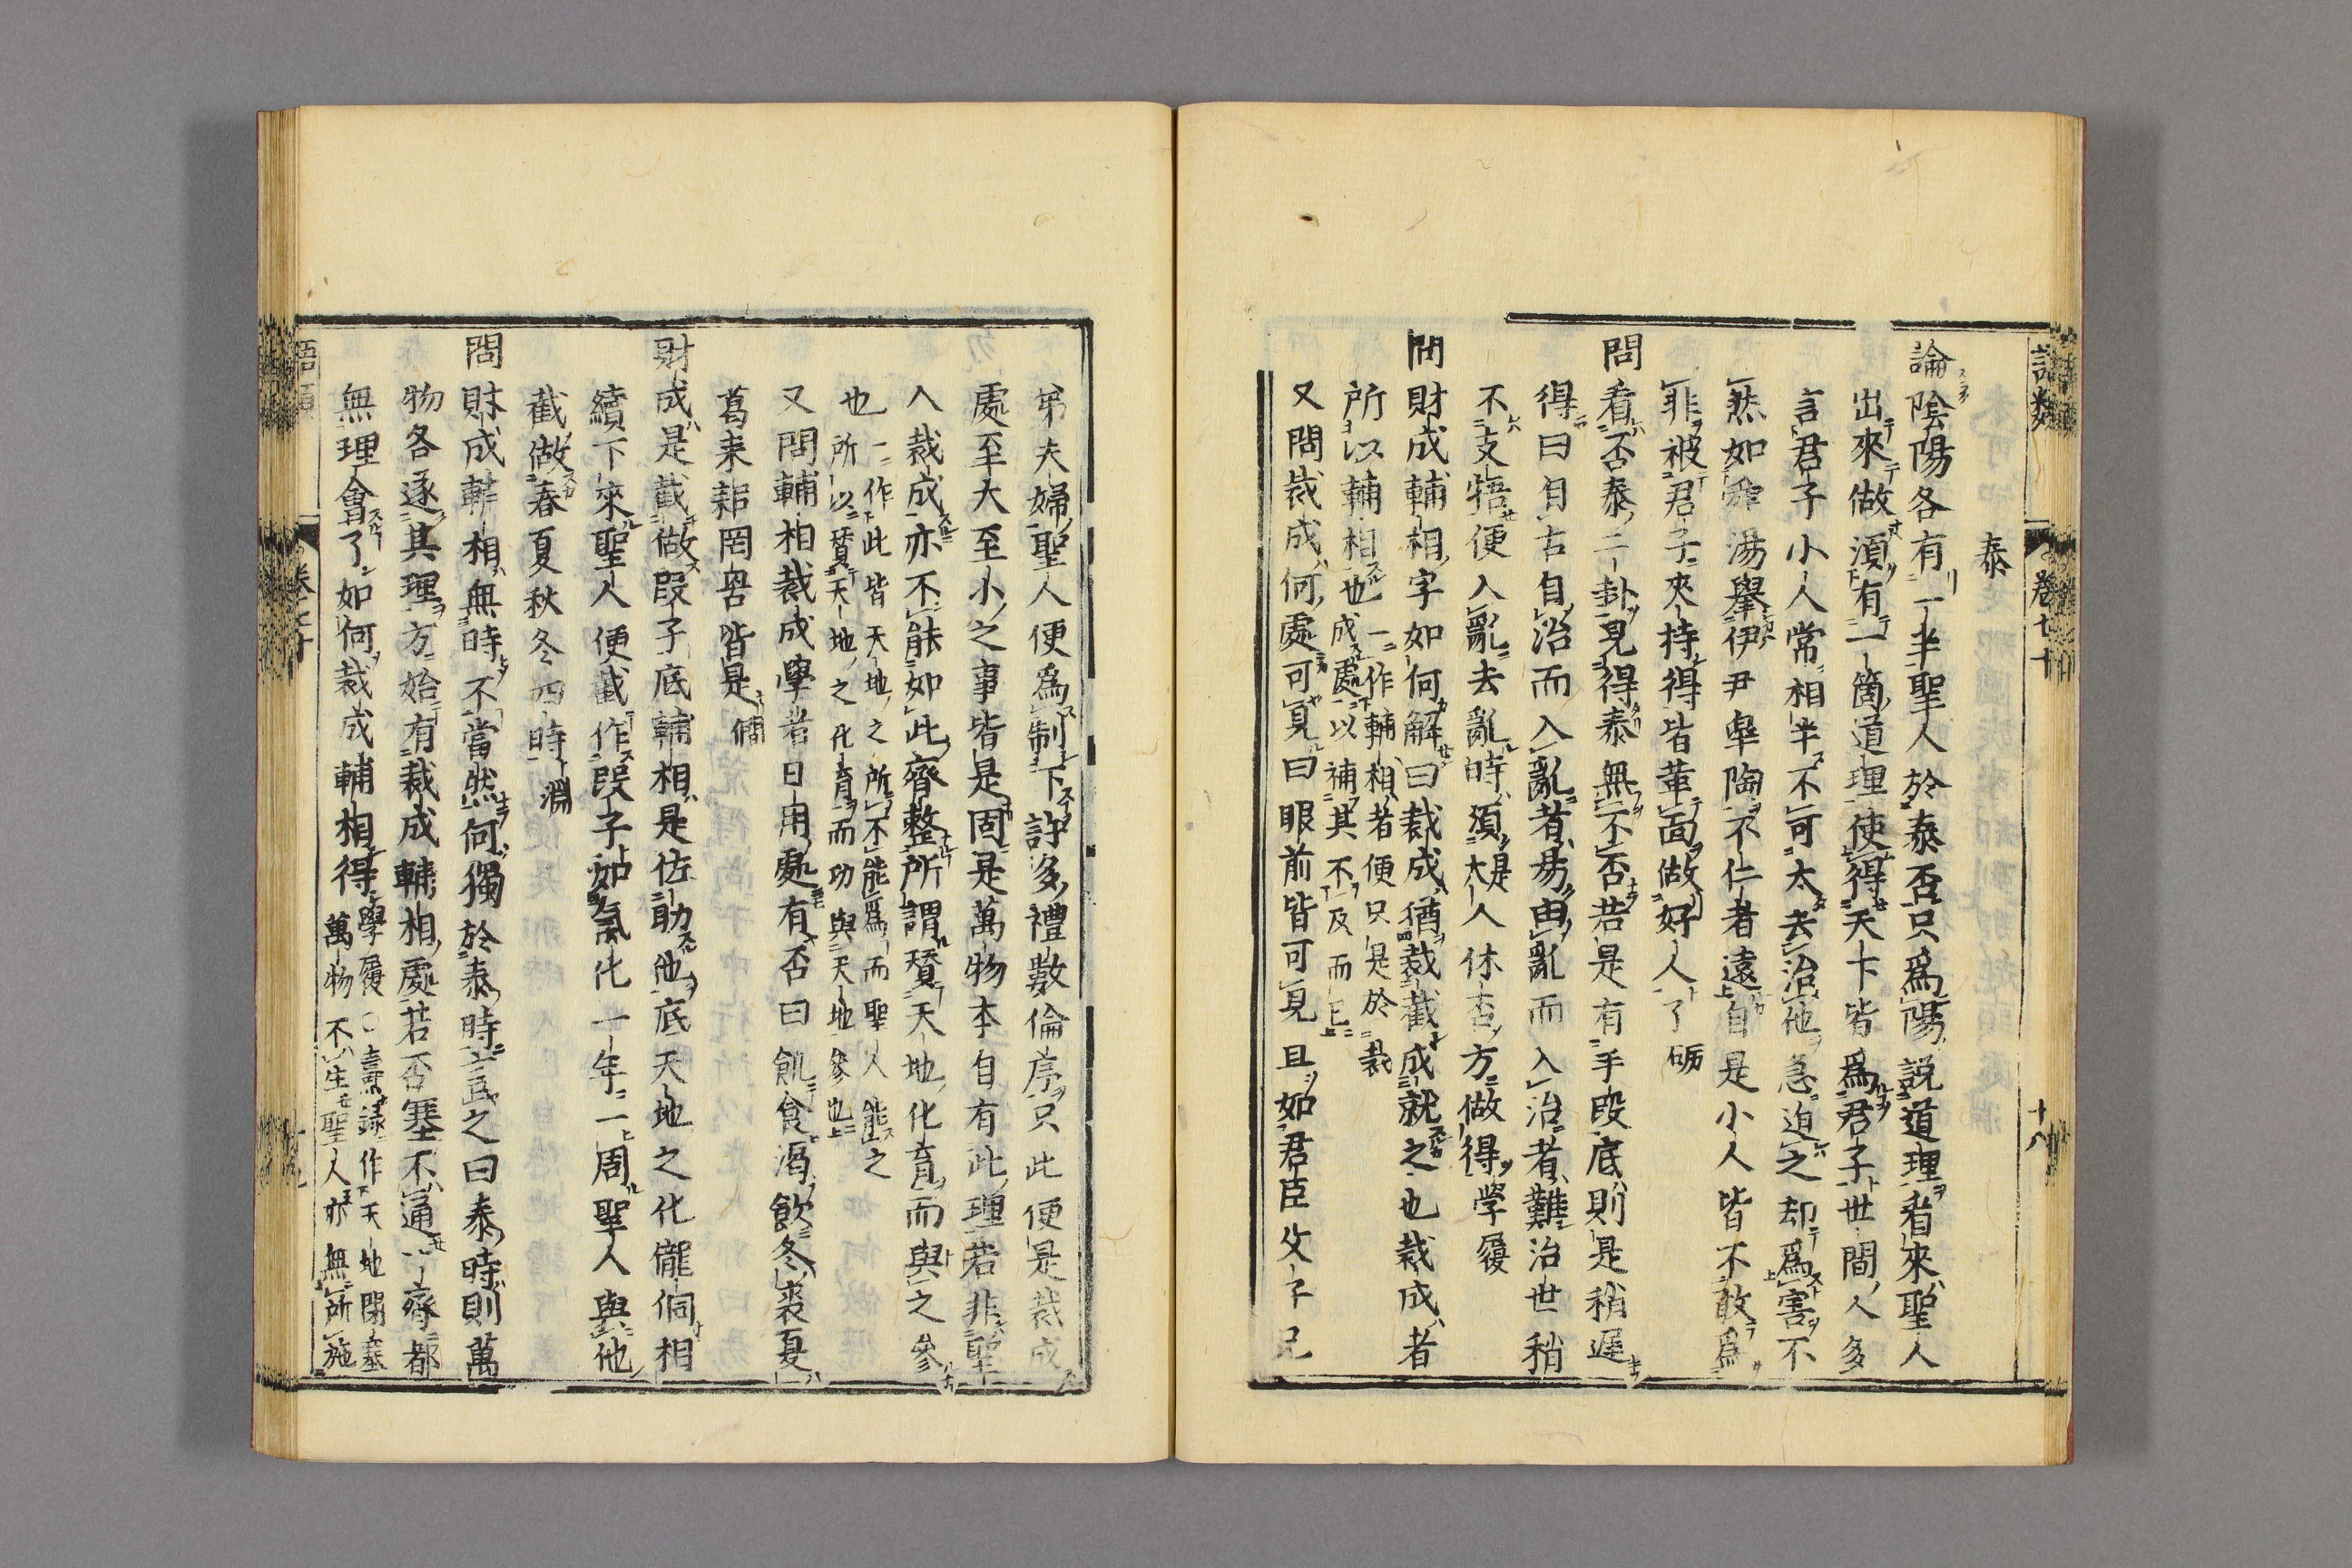 泰
論陰陽各有一半聖人於泰否只爲陽說道理看來聖人
出來做須有一箇道理使得天下皆爲君子世間人多
言君子小人常相半不可太去治他急迫之却爲害不
然如舜湯舉伊尹皐陶不仁者遠自是小人皆不敢爲
非被君子夾持得皆革面做好人了礪
問看否泰二卦見得泰無不否若是有手段底則是稍遲
得曰自古自治而入亂者易由亂而入治者難治世稍
不支捂便入亂去亂時須是大人休否方做得學履
問財成輔相字如何解曰裁成猶裁截成就之也裁成者
所以輔相也一作輔相者便只是於裁成處以補其不及而已
又問裁成何處可見曰眼前皆可見且如君臣父子兄
語類 卷七十 十八
弟夫婦聖人便爲制下許多禮數倫序只此便是裁成
處至大至小之事皆是固是萬物本自有此理若非聖
人裁成亦不能如此齊整所謂贊天地化育而與之參
也一作此皆天地之所不能爲而聖人能之所以贊天地之化育而功與天地參也
又問輔相裁成學者日用處有否曰飢食渴飲冬裘夏
葛耒耜罔罟皆是僩
財成是截做段子底輔相是佐助他底天地之化儱侗相
續下來聖人便截作段子如氣化一年一周聖人與他
截做春夏秋冬四時淵
問財成輔相無時不當然何獨於泰時言之曰泰時則萬
物各遂其理方始有裁成輔相處若否塞不通一齊都
無理會了如何裁成輔相得學履○燾錄作天地閉塞萬物不生聖人亦無所施
語類 卷七十